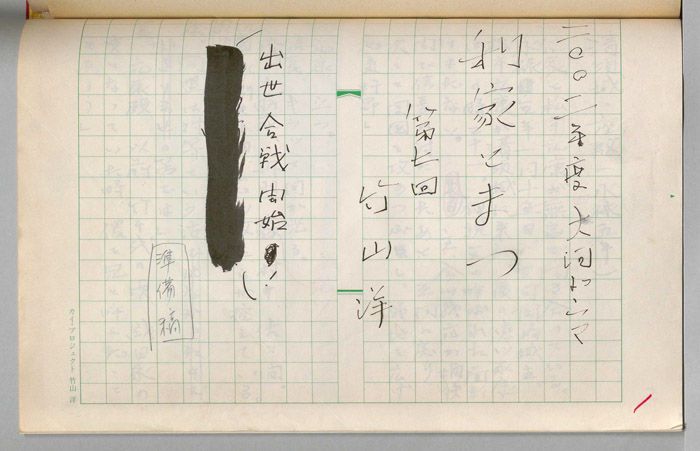 二〇〇二年度 大河ドラマ
利家とまつ
第七回
竹山 洋
出世合戦開始!
準備稿
カイ・プロジェクト 竹山 洋